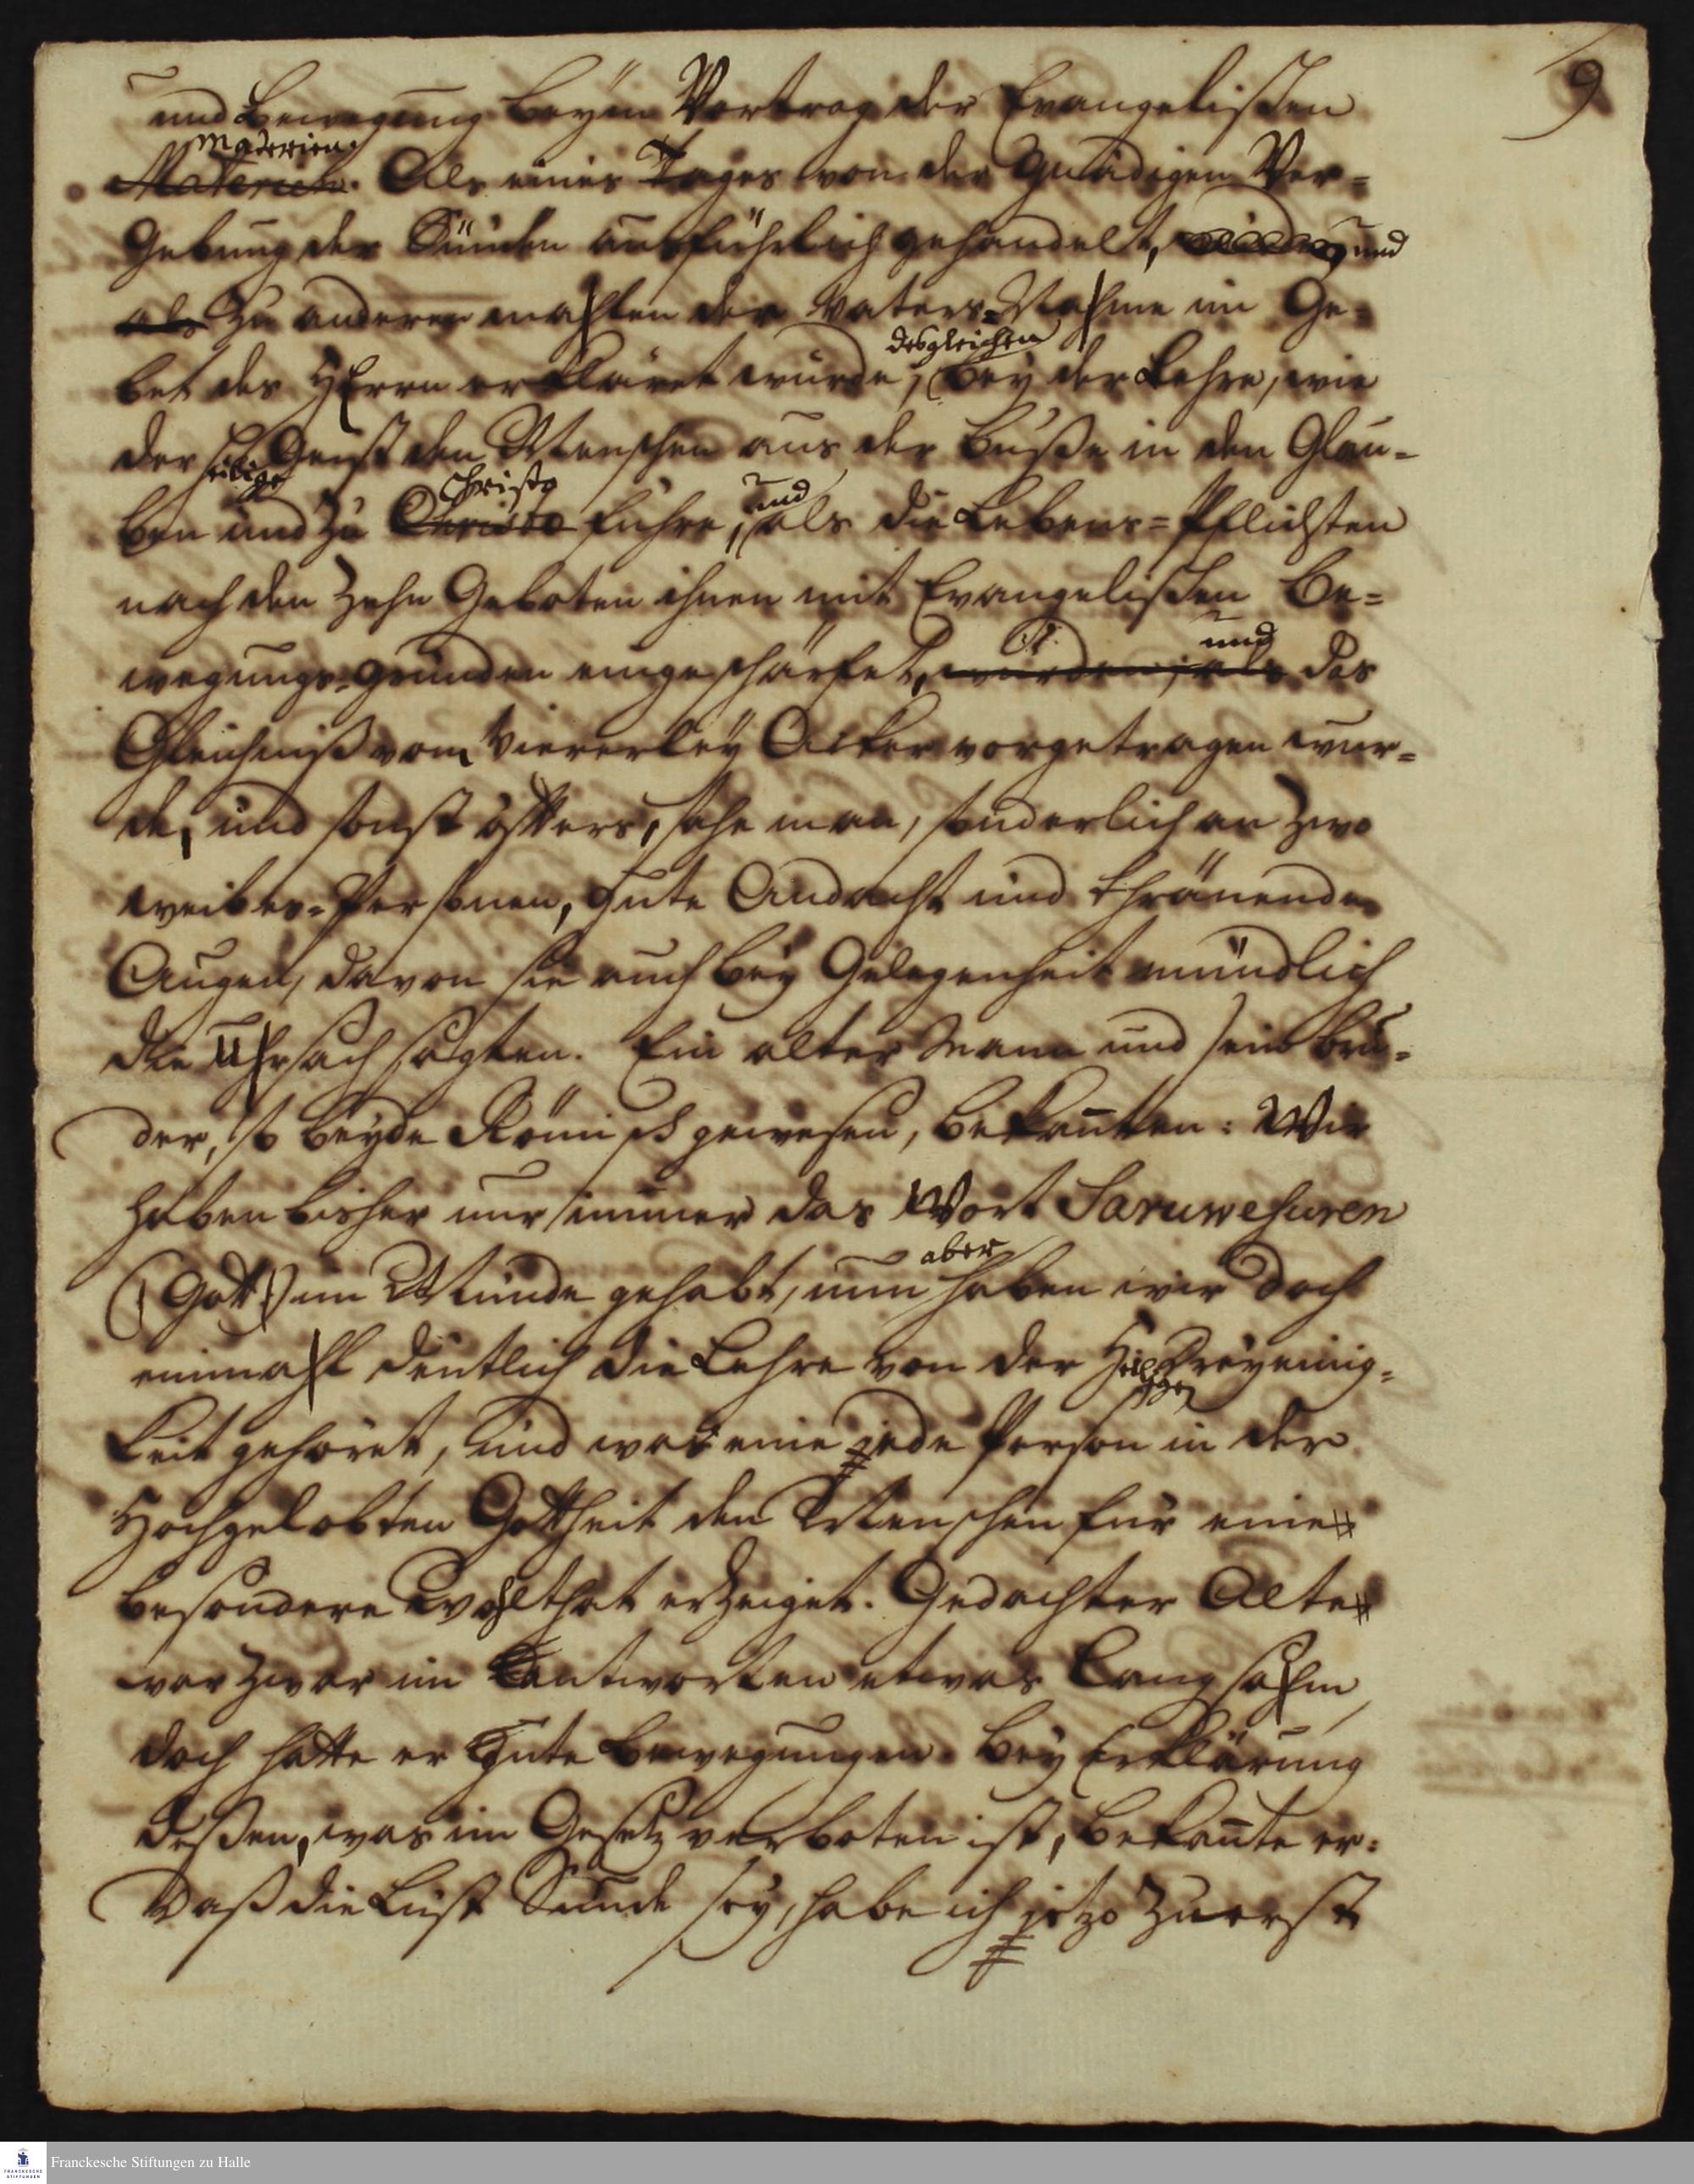 9
und Bewegung beym Vortrag der Evangelischen
Materien.
Materien. Als eines Tages von der gnädigen Ver=
gebung der Sünden ausführlich gehandelt, und
als zu anderen mahlen der Vaters=Nahme im Ge=
desgleichen
bet des HErrn erkläret wurde, bey der Lehre, wie
der heilige Geist den Menschen aus der Buße in den Glau=
Christo und
ben und zu Christo führe, als die Lebens=Pflichten
nach den Zehn Geboten ihnen mit Evangelischen Be=
und
wegungs=Gründen eingeschärfet, wurden, als das
Gleichniß vom Viererley Acker vorgetragen wur=
de, und sonst öffters, sahe man, sonderlich an zwo
Weibes=Personen, gute Andacht und thränende
Augen, davon sie auch bey Gelegenheit mündlich
die Uhrsach sagten. Ein alter Mann und sein Bru=
der, so beyde Römisch gewesen, bekanten: Wir
haben bisher nur immer das Wort Saruwesuren
aber
(Gott) im Munde gehabt, nun haben wir doch
einmahl deutlich die Lehre von der Heiligen Dreyeinig=
keit gehöret, und was eine jede Person in der
Hochgelobten Gottheit den Menschen für eine
besondere Wohlthat erzeiget. Gedachter Alte
war zwar im Antworten etwas langsahm,
doch hatte er gute Bewegungen. Bey Erklärung
deßen, was im Gesetz verboten ist, bekante er:
Daß die Lust Sünde sey, habe ich jetzo zuerst
Franckesche Stiftungen zu Halle
FRANCKESCHE
STIFTUNGEN